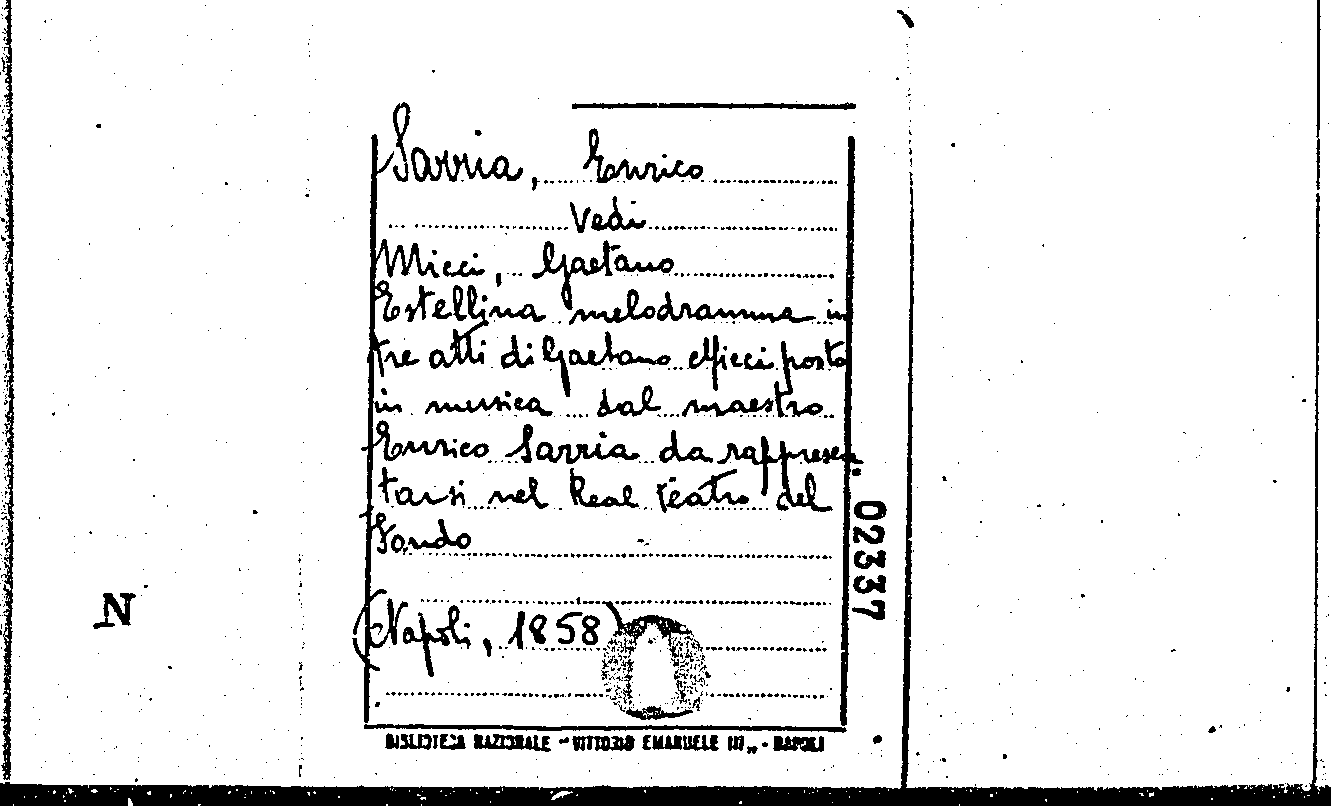 Sarria, Enrico
Vedi
Micci, Gaetano
Estellina melodramma in
tre atti di Gaetano Micci posto
in musica dal maestro
Enrico Sarria da rappresen
tarsi nel Real Teatro del
Fondo
(Napoli, 1858)
BIBLIOTECA NAZIONALE "VITTORIO EMANUELE III" - NAPOLI
02337
N